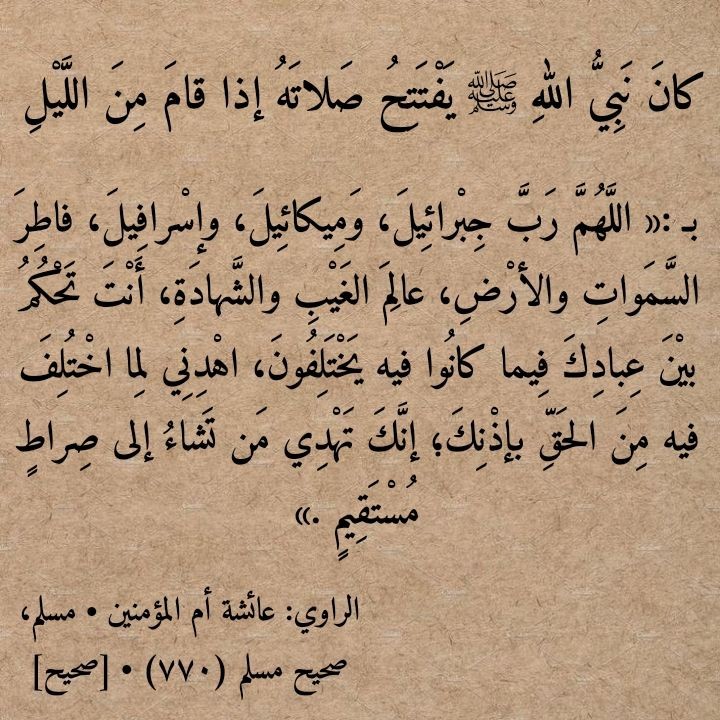 كانَ نَبِيُّ اللهِ ﷺ يَفْتَتحُ صَلاتَهُ إذا قامَ مِنَ اللَّيْلِ
بـ :« اللَّهُمَّ رَبَّ جِبْرائِيلَ، وَمِيكائِيلَ، وإسْرافِيلَ، فاطِرَ
السَّمَواتِ والأرْضِ، عالِمَ الغَيْبِ والشَّهادَةِ، أَنْتَ تَحْكُمُ
بيْنَ عِبادِكَ فِيما كانُوا فيه يَخْتَلِفُونَ، اهْدِنِي لِما اخْتُلِفَ
فيه مِنَ الحَقِّ بإذْنِكَ؛ إنَّكَ تَهْدِي مَن تَشاءُ إلى صِراطٍ
مُسْتَقِيمٍ .»
الراوي: عائشة أم المؤمنين • مسلم،
صحيح مسلم (٧٧٠) • [صحيح]